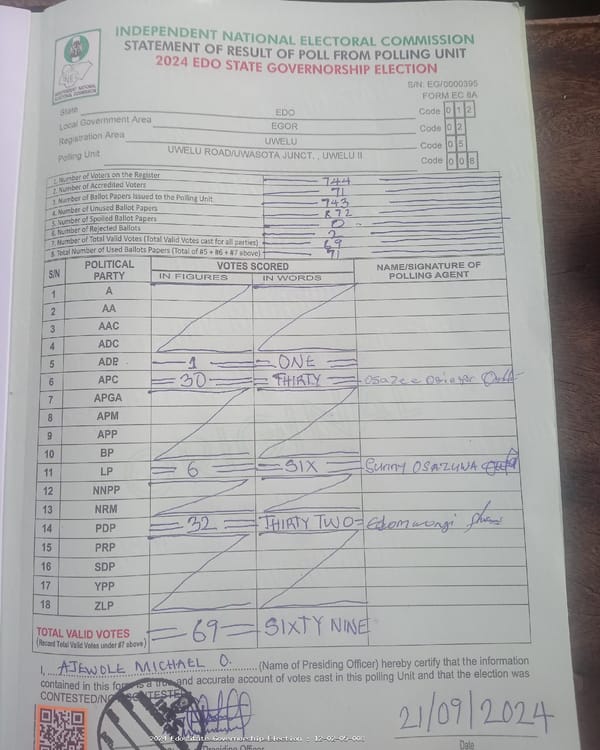 INDEPENDENT NATIONAL ELECTORAL COMMISSION
STATEMENT OF RESULT OF POLL FROM POLLING UNIT
2024 EDO STATE GOVERNORSHIP ELECTION
INDEPENDENT NATIONAL ELECTORAL COMMISSION
S/N: EG/0000395
FORM EC 8A
State EDO Code 0 1 2
Local Government Area EGOR Code 0 2
Registration Area UWELU Code 0 5
Polling Unit UWELU ROAD/UWASOTA JUNCT. , UWELU II Code 0 0 8
1. Number of Voters on the Register 744
2. Number of Accredited Voters 71
3. Number of Ballot Papers Issued to the Polling Unit 743
4. Number of Unused Ballot Papers 672
5. Number of Spoiled Ballot Papers 0
6. Number of Rejected Ballots 2
7. Number of Total Valid Votes (Total Valid Votes cast for all parties) 69
8. Total Number of Used Ballots Papers (Total of #5 + #6 + #7 above) 71
S/N POLITICAL PARTY VOTES SCORED NAME/SIGNATURE OF POLLING AGENT
IN FIGURES IN WORDS
1 A
2 AA
3 AAC
4 ADC
5 ADP 1 ONE
6 APC 30 THIRTY
7 APGA
8 APM
9 APP
10 BP
11 LP 6 SIX Sunny OSAZUWA
12 NNPP
13 NRM
14 PDP 32 THIRTY TWO
15 PRP
16 SDP
17 YPP
18 ZLP
TOTAL VALID VOTES 69 SIXTY NINE
(Record Total Valid Votes under #7 above)
I, AJEWOLE MICHAEL O. (Name of Presiding Officer) hereby certify that the information
contained in this form is a true and accurate account of votes cast in this polling Unit and that the election was
CONTESTED/NOT CONTESTED
21/09/2024
2024 Edo State Governorship Election : 12-02-05-008
Presiding Officer Date